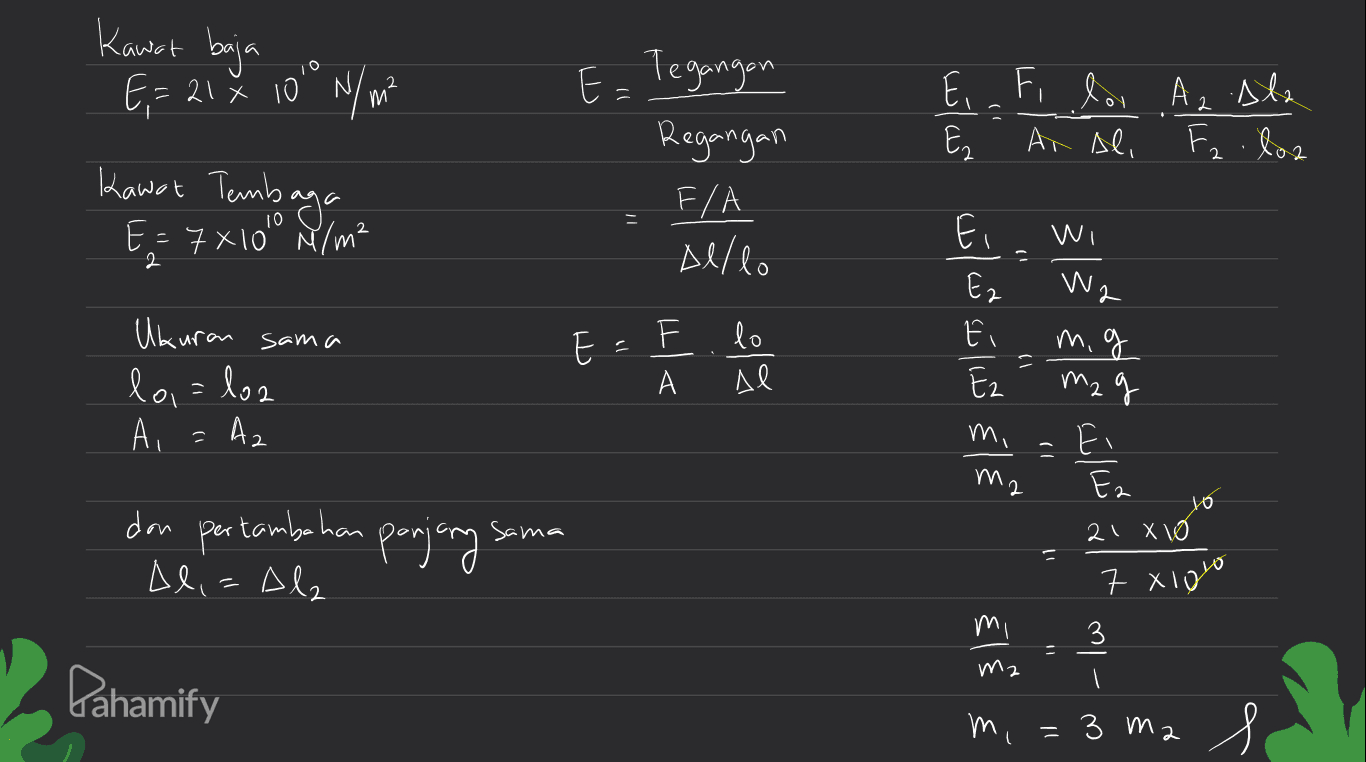 Kawat baja
E₁ = 21 x 10¹⁰ N/m²
Kawat Tembaga
E₂ = 7 x 10¹⁰ N/m²
Ukuran sama
l₀₁ = l₀₂
A₁ = A₂
dan pertambahan panjang sama
Δl₁ = Δl₂
E = Tegangan / Regangan
= F/A / Δl/l₀
E = F/A . l₀/Δl
E₁/E₂ = F₁/A₁ . l₀₁/Δl₁ . A₂ . Δl₂ / F₂ . l₀₂
E₁/E₂ = W₁/W₂
E₁/E₂ = m₁g/m₂g
m₁/m₂ = E₁/E₂
= 21 x 10¹⁰ / 7 x 10¹⁰
m₁/m₂ = 3/1
m₁ = 3 m₂
Pahamify